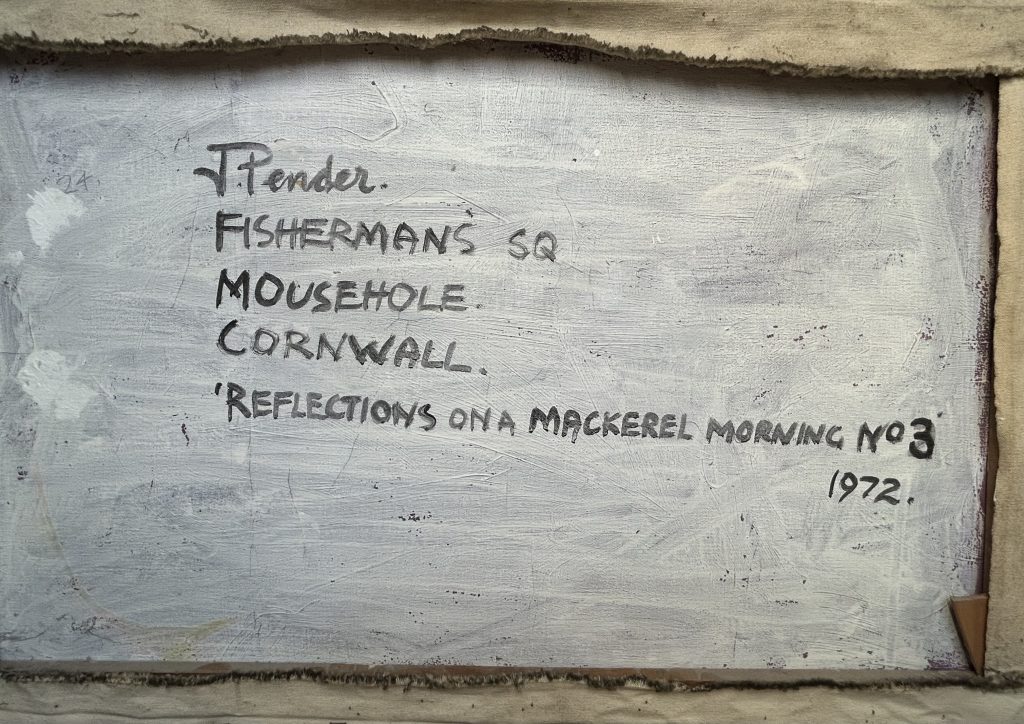 J. Pender.
FISHERMANS SQ
MOUSEHOLE.
CORNWALL.
'REFLECTIONS ON A MACKEREL MORNING No 3'
1972.